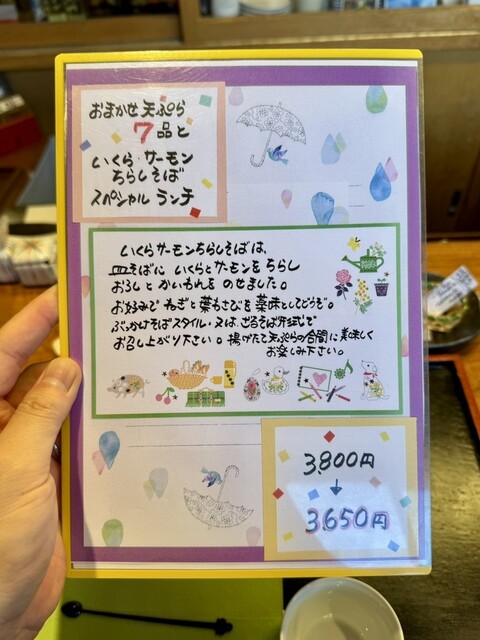 おまかせ天ぷら
7品と
いくら・サーモン
ちらしそば
スペシャル ランチ
いくらサーモンちらしそばは、
皿そばに いくらとサーモンを ちらし
おろしと かいわれを のせました。
お好みで ねぎと葉わさびを 薬味としてどうぞ。
ぶっかけそばスタイル・又は、ざるそば形式で
お召し上がり下さい。揚げたて天ぷらの合間に美味しく
お楽しみ下さい。
3,800円
↓
3,650円